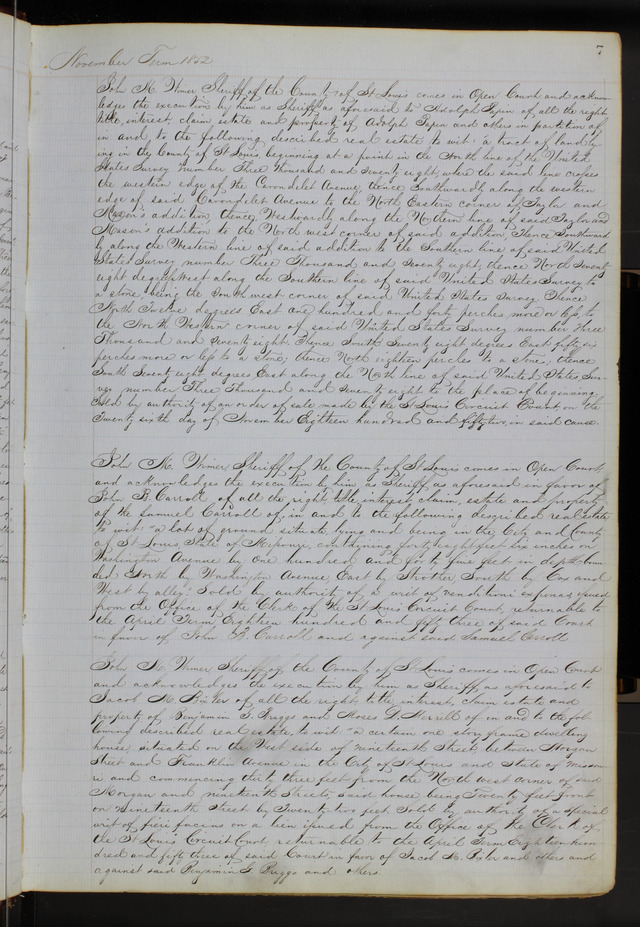 7
November Term 1852
John M. Wimer Sheriff of the County of St Louis comes in Open Court and acknow-
ledges the execution by him as Sheriff as aforesaid to Adolph Papin of all the right
title, interest claim estate and property of Adolph Papin and others in partition of
in and, to the following described real estate to wit: a tract of land ly-
ing in the County of St Louis, beginning at a point in the North line of the United
States Survey number Three Thousand and Seventy eight, where the said line crosses
the western edge of the Carondelet Avenue, thence Southwardly along the western
edge of said Carondelet Avenue to the North Eastern corner of Taylor and
Mason's addition, thence, Westwardly along the Northern line of said Taylor and
Mason's addition to the North west corner of said addition, Thence Southward
ly along the Western line of said addition to the Southern line of said United
States Survey number Three Thousand and Seventy eight, thence North Seventy
eight degrees West along the Southern line of said United States Survey to
a stone being the South west corner of said United States Survey Thence
North Twelve degrees East one hundred and forty perches more or less, to
the North Western corner of said United States Survey number Three
Thousand and Seventy eight. Thence South Seventy eight degrees East fifty six
perches more or less to a stone, thence North eighteen perches to a stone, thence
South Seventy eight degrees East along the North line of said United States Sur-
vey number Three Thousand and Seventy eight to the place of beginning.
Sold by authority of an order of sale made by the St Louis Circuit Court, on the
Twenty sixth day of November Eighteen hundred and fifty two, in said cause.
John M. Wimer, Sheriff of the County of St Louis comes in Open Court,
and acknowledges the execution by him as Sheriff as aforesaid in favor of
John R. Carroll of all the right title, interest, claim, estate and property
of the Samuel Carroll of, in and to the following described real estate
to wit: "a lot of ground situate lying and being in the City and County
of St Louis, State of Missouri, containing forty eight feet six inches on
Washington Avenue by one hundred and forty five feet in depth, boun-
ded North by Washington Avenue East by Strother South by Cox and
West by alley." Sold by authority of a writ of venditioni exponas issued
from the Office of the Clerk of the St Louis Circuit Court, returnable to
the April Term Eighteen hundred and fifty three of said Court
in favor of John R. Carroll and against said Samuel Carroll
John M. Wimer Sheriff of the County of St Louis comes in Open Court
and acknowledges the execution by him as Sheriff as aforesaid to
Jacob M. of all the right, title, interest, claim estate and
property of Benjamin G. Griggs and Moses D. Herrell of in and to the fol-
lowing described real estate, to wit "a certain one story frame dwelling
house, situated on the West side of nineteenth Street, between Morgan
Street and Franklin Avenue in the City of St Louis and State of Missou-
ri and commencing thirty three feet from the North west corner of said
Morgan and nineteenth Streets, said house being Twenty feet front
on nineteenth Street by Twenty-two feet. Sold by authority of a special
writ of fieri facias on a lien issued from the Office of the Clerk of
the St Louis Circuit Court returnable to the April Term Eighteen hun-
dred and fifty three of said Court in favor of Jacob M. and others and
against said Benjamin G. Griggs and others.